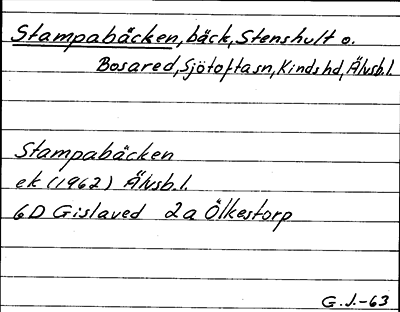 Stampabäcken, bäck, Stenshult o.
Bosared, Sjötoftasn, Kinds hd, Älvsb.l.
Stampabäcken
ek (1962) Älvsb.l.
6D Gislaved 2a Ölkestorp
G.J.-63